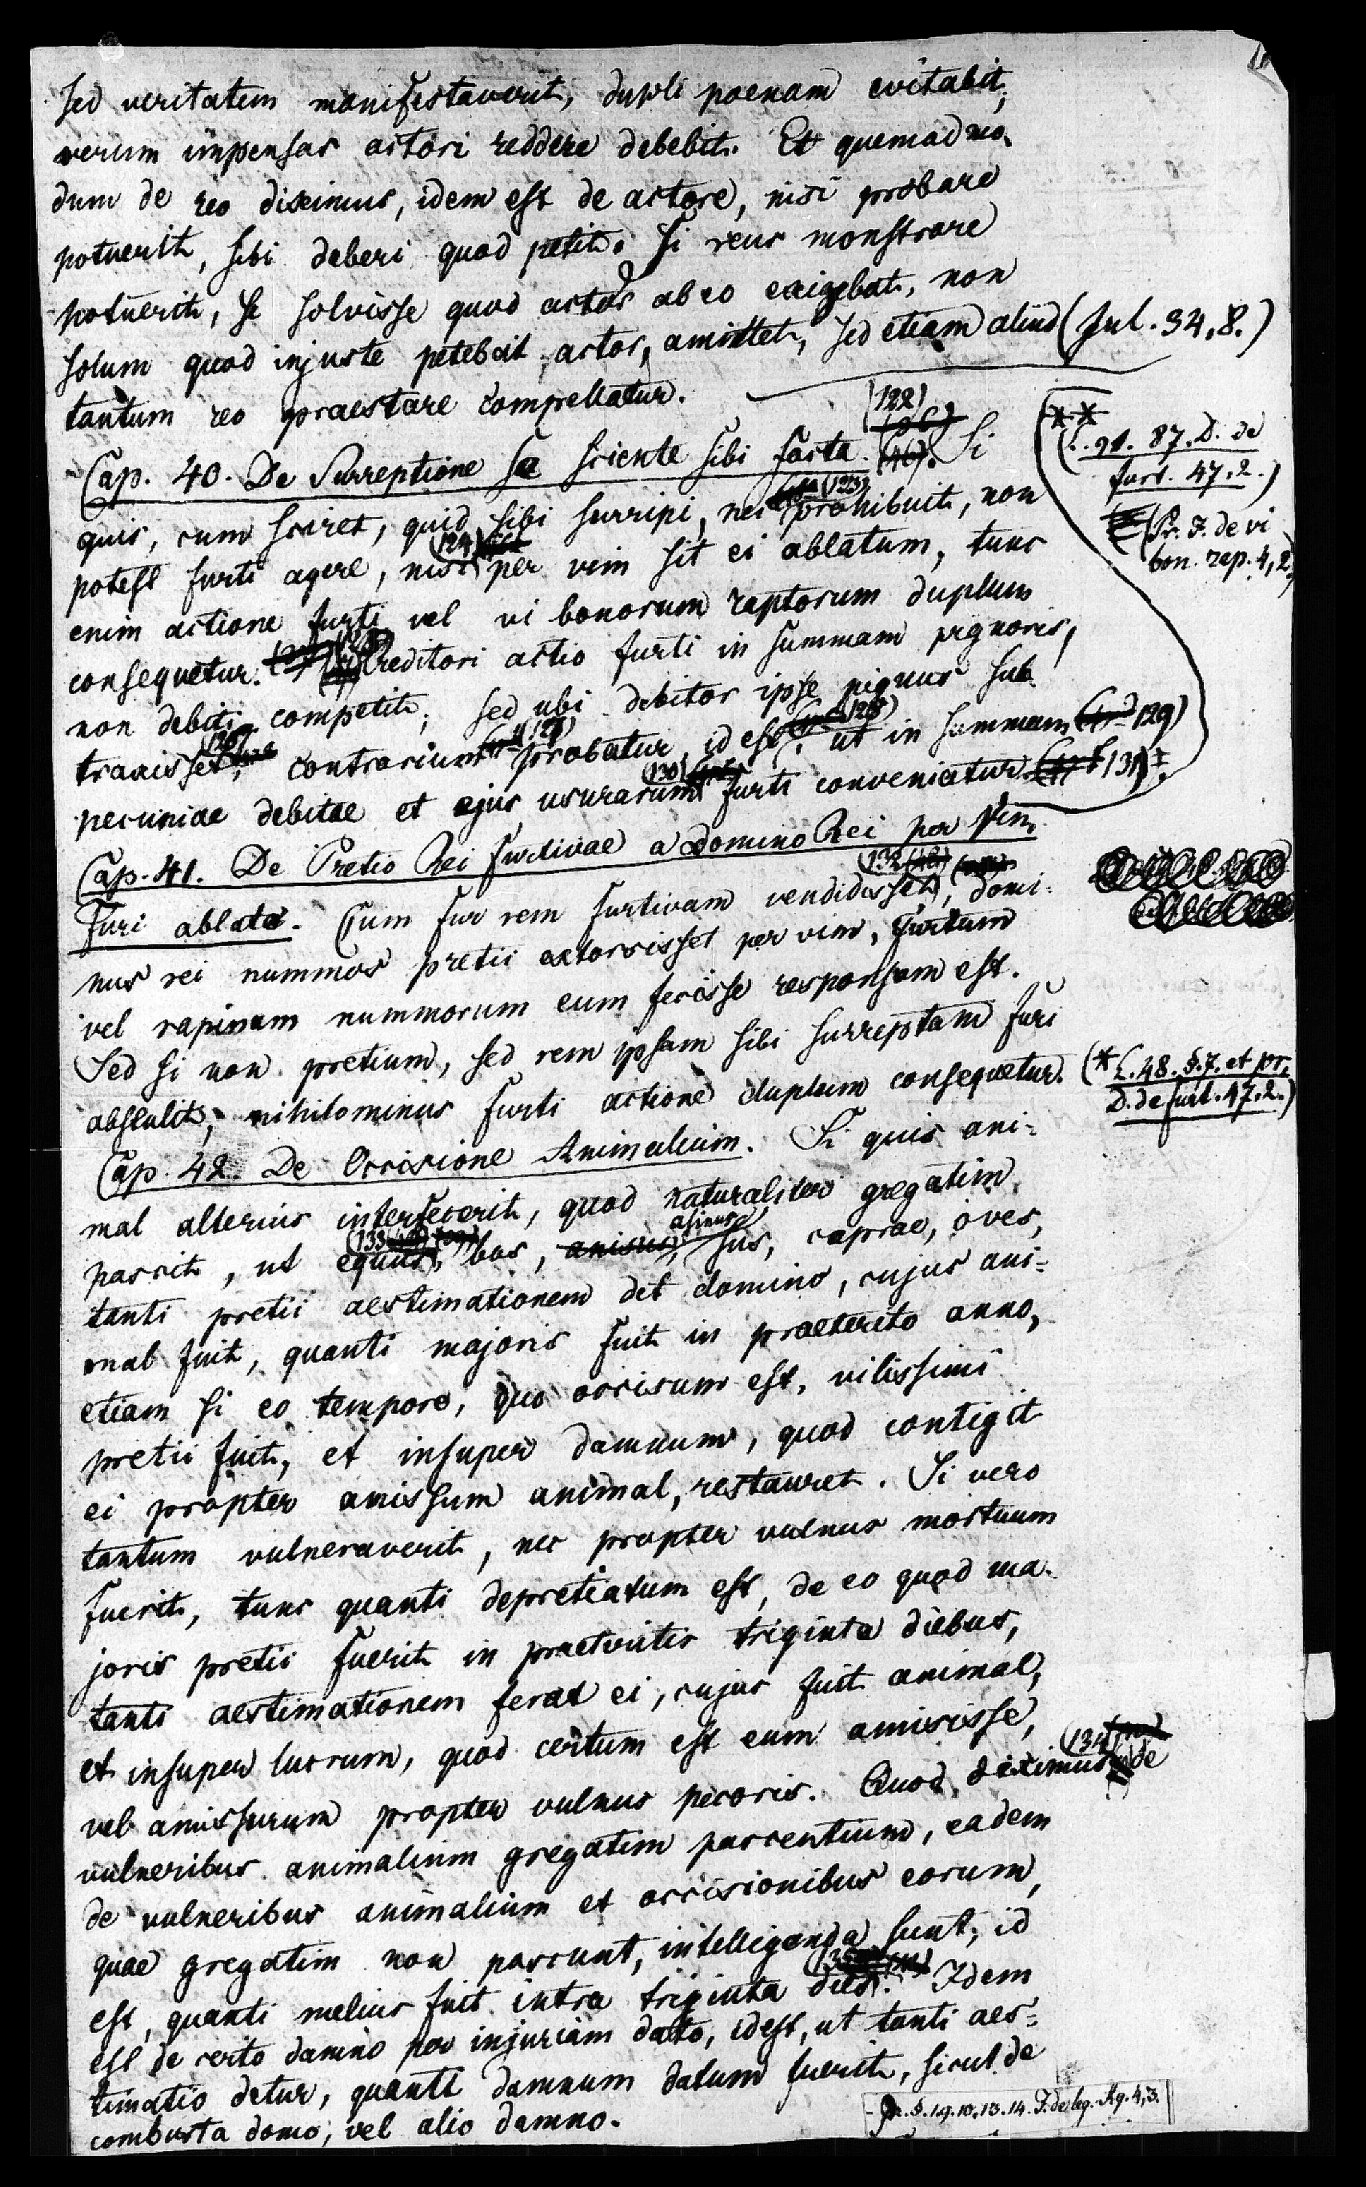 sed veritatem manifestaverit, dupli poenam evitabit,
verum impensas actori reddere debebit. Et quemadmo-
dum de reo diximus, idem est de actore, nisi probare
potuerit, sibi deberi quod petit. Si reus monstrare
potuerit, se solvisse quod actor ab eo exigebat, non
solum quod injuste petebat actor, amittet, sed etiam aliud (Jul. 34,8.)
tantum reo praestare compellatur.
(122)
Cap. 40. De Surreptione se sciente sibi facta. (46). Si
(** L. 91. 87. D. de
furt. 47.2.)
(Pr. J. de vi
bon. rap. 4,2)
quis, cum sciret, quid sibi surripi, nec (123) prohibuit, non
potest furti agere, nisi (124) per vim sit ei ablatum, tunc
enim actione furti vel vi bonorum raptorum duplum
consequetur. Creditori actio furti in summam pignoris,
non debiti competit; sed ubi debitor ipse pignus sub-
traxisset, contrarium (127) probatur, id est, (128) ut in summam (129)
pecuniae debitae et ejus usurarum (130) furti conveniatur (131).
Cap. 41. De Pretio Rei furtivae a domino Rei per Vim
furi ablato. Cum fur rem furtivam vendidisset (132), domi-
nus rei nummos pretii extorsisset per vim, furtum
vel rapinam nummorum eum fecisse responsum est.
Sed si non pretium, sed rem ipsam sibi surreptam furi
abstulit, nihilominus furti actione duplum consequetur. (* L. 48. §. 7. et pr.
D. de furt. 47.2.)
Cap. 42. De Occisione Animalium. Si quis ani-
mal alterius interfecerit, quod naturaliter gregatim
pascit, ut equus (133), bos, anisus, asinus, sus, caprae, oves,
tanti pretii aestimationem det domino, cujus ani-
mal fuit, quanti majoris fuit in praeterito anno,
etiam si eo tempore, quo occisum est, vilissimi
pretii fuit, et insuper damnum, quod contigit
ei propter amissum animal, restauret. Si vero
tantum vulneraverit, nec propter vulnus mortuum
fuerit, tunc quanti depretiatum est, de eo quod ma-
joris pretii fuerit in praeteritis triginta diebus,
tanti aestimationem ferat ei, cujus fuit animal,
et insuper lucrum, quod certum est eum amisisse,
vel amissurum propter vulnus pecoris. Quod diximus (134) de
vulneribus animalium gregatim pascentium, eadem
de vulneribus animalium et occisionibus eorum,
quae gregatim non pascunt, intelligenda sunt, id
est, quanti melius fuit intra triginta dies (135). Idem
est de certo damno per injuriam dato, id est, ut tanti aes-
timatio detur, quanti damnum datum fuerit, sicut de
combusta domo, vel alio damno.
Pr. §. 1.9.10.13.14. J. de leg. Aq. 4,3.